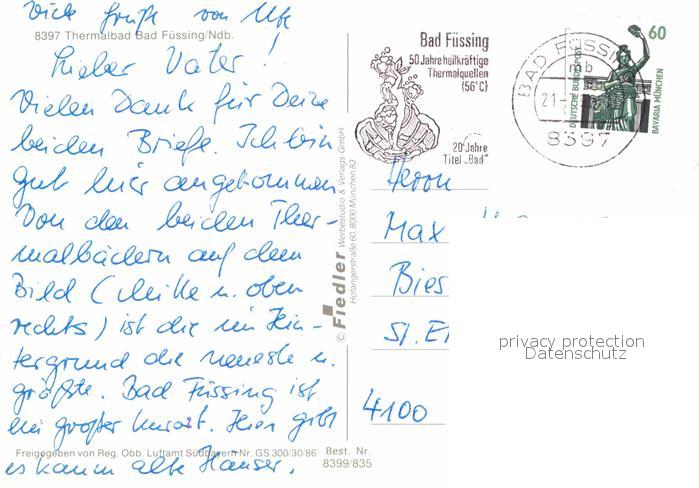 Viele Grüße von Ute
8397 Thermalbad Bad Füssing/Ndb.
Lieber Vater!
Vielen Dank für Deine
beiden Briefe. Ich bin
gut hier angekommen.
Von den beiden Ther-
malbädern auf dem
Bild (Mitte u. oben
rechts) ist die im Hin-
tergrund die neueste u.
größte. Bad Füssing ist
ein großer Kurort. Hier gibt
es kaum alte Häuser.
Freigegeben von Reg. Obb. Luftamt Südbayern Nr. GS 300/30/86
Best. Nr.
8399/835
© Fiedler Werbestudio & Verlags GmbH
Hofangerstraße 60, 8000 München 83
Bad Füssing
50 Jahre heilkräftige
Thermalquellen
(56°C)
20 Jahre
Titel „Bad"
BAD FÜSSING
mb
21.
8397
60
DEUTSCHE BUNDESPOST
BAVARIA MÜNCHEN
Herrn
Max
Bies
St. Et
4100
privacy protection
Datenschutz